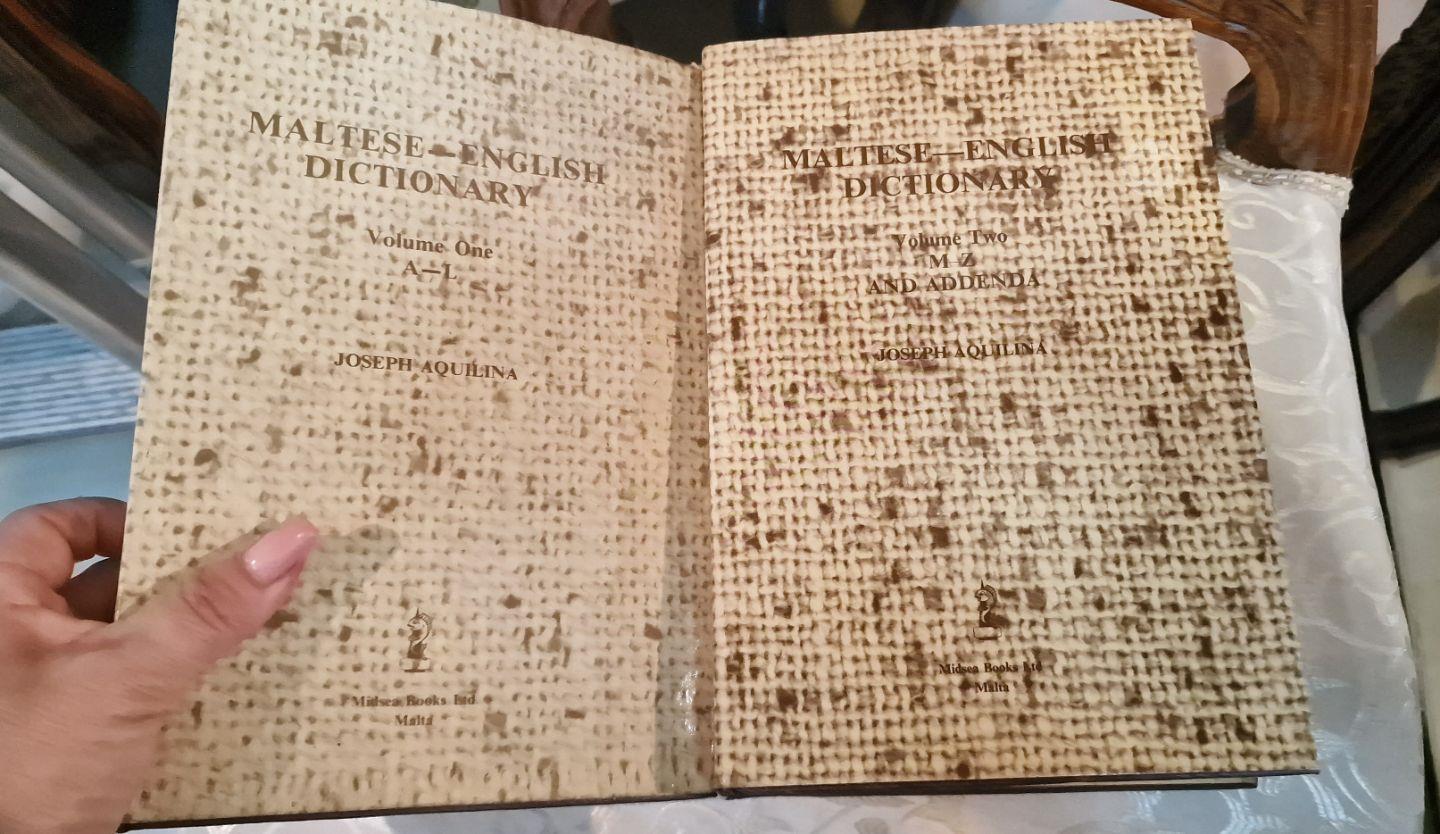 MALTESE—ENGLISH
DICTIONARY
Volume One
A—L
JOSEPH AQUILINA
Midsea Books Ltd
Malta
MALTESE—ENGLISH
DICTIONARY
Volume Two
M–Z
AND ADDENDA
JOSEPH AQUILINA
Midsea Books Ltd
Malta